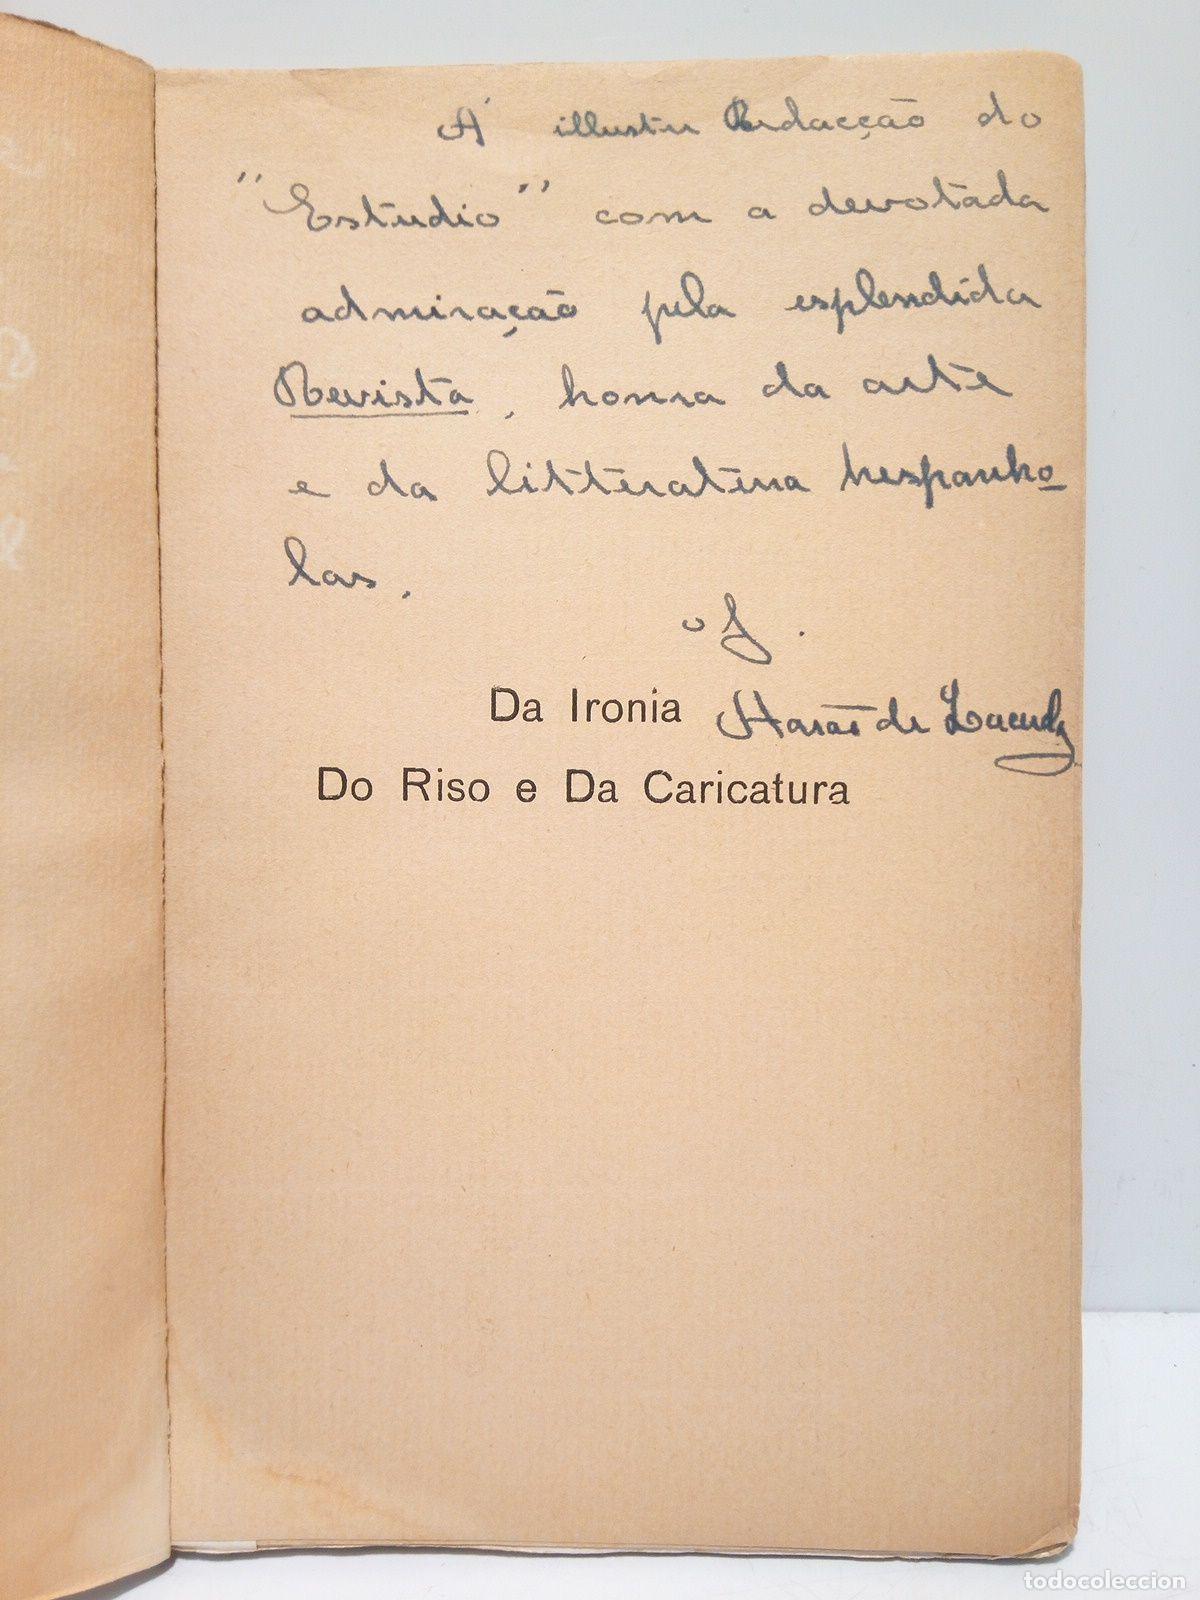 A' illustre Redacção do
"Estudio" com a devotada
admiração pela esplendida
Revista, honra da arte
e da litteratura hespanho-
las.
of.
Da Ironia
Aarão de Lacerda
Do Riso e Da Caricatura
todocoleccion